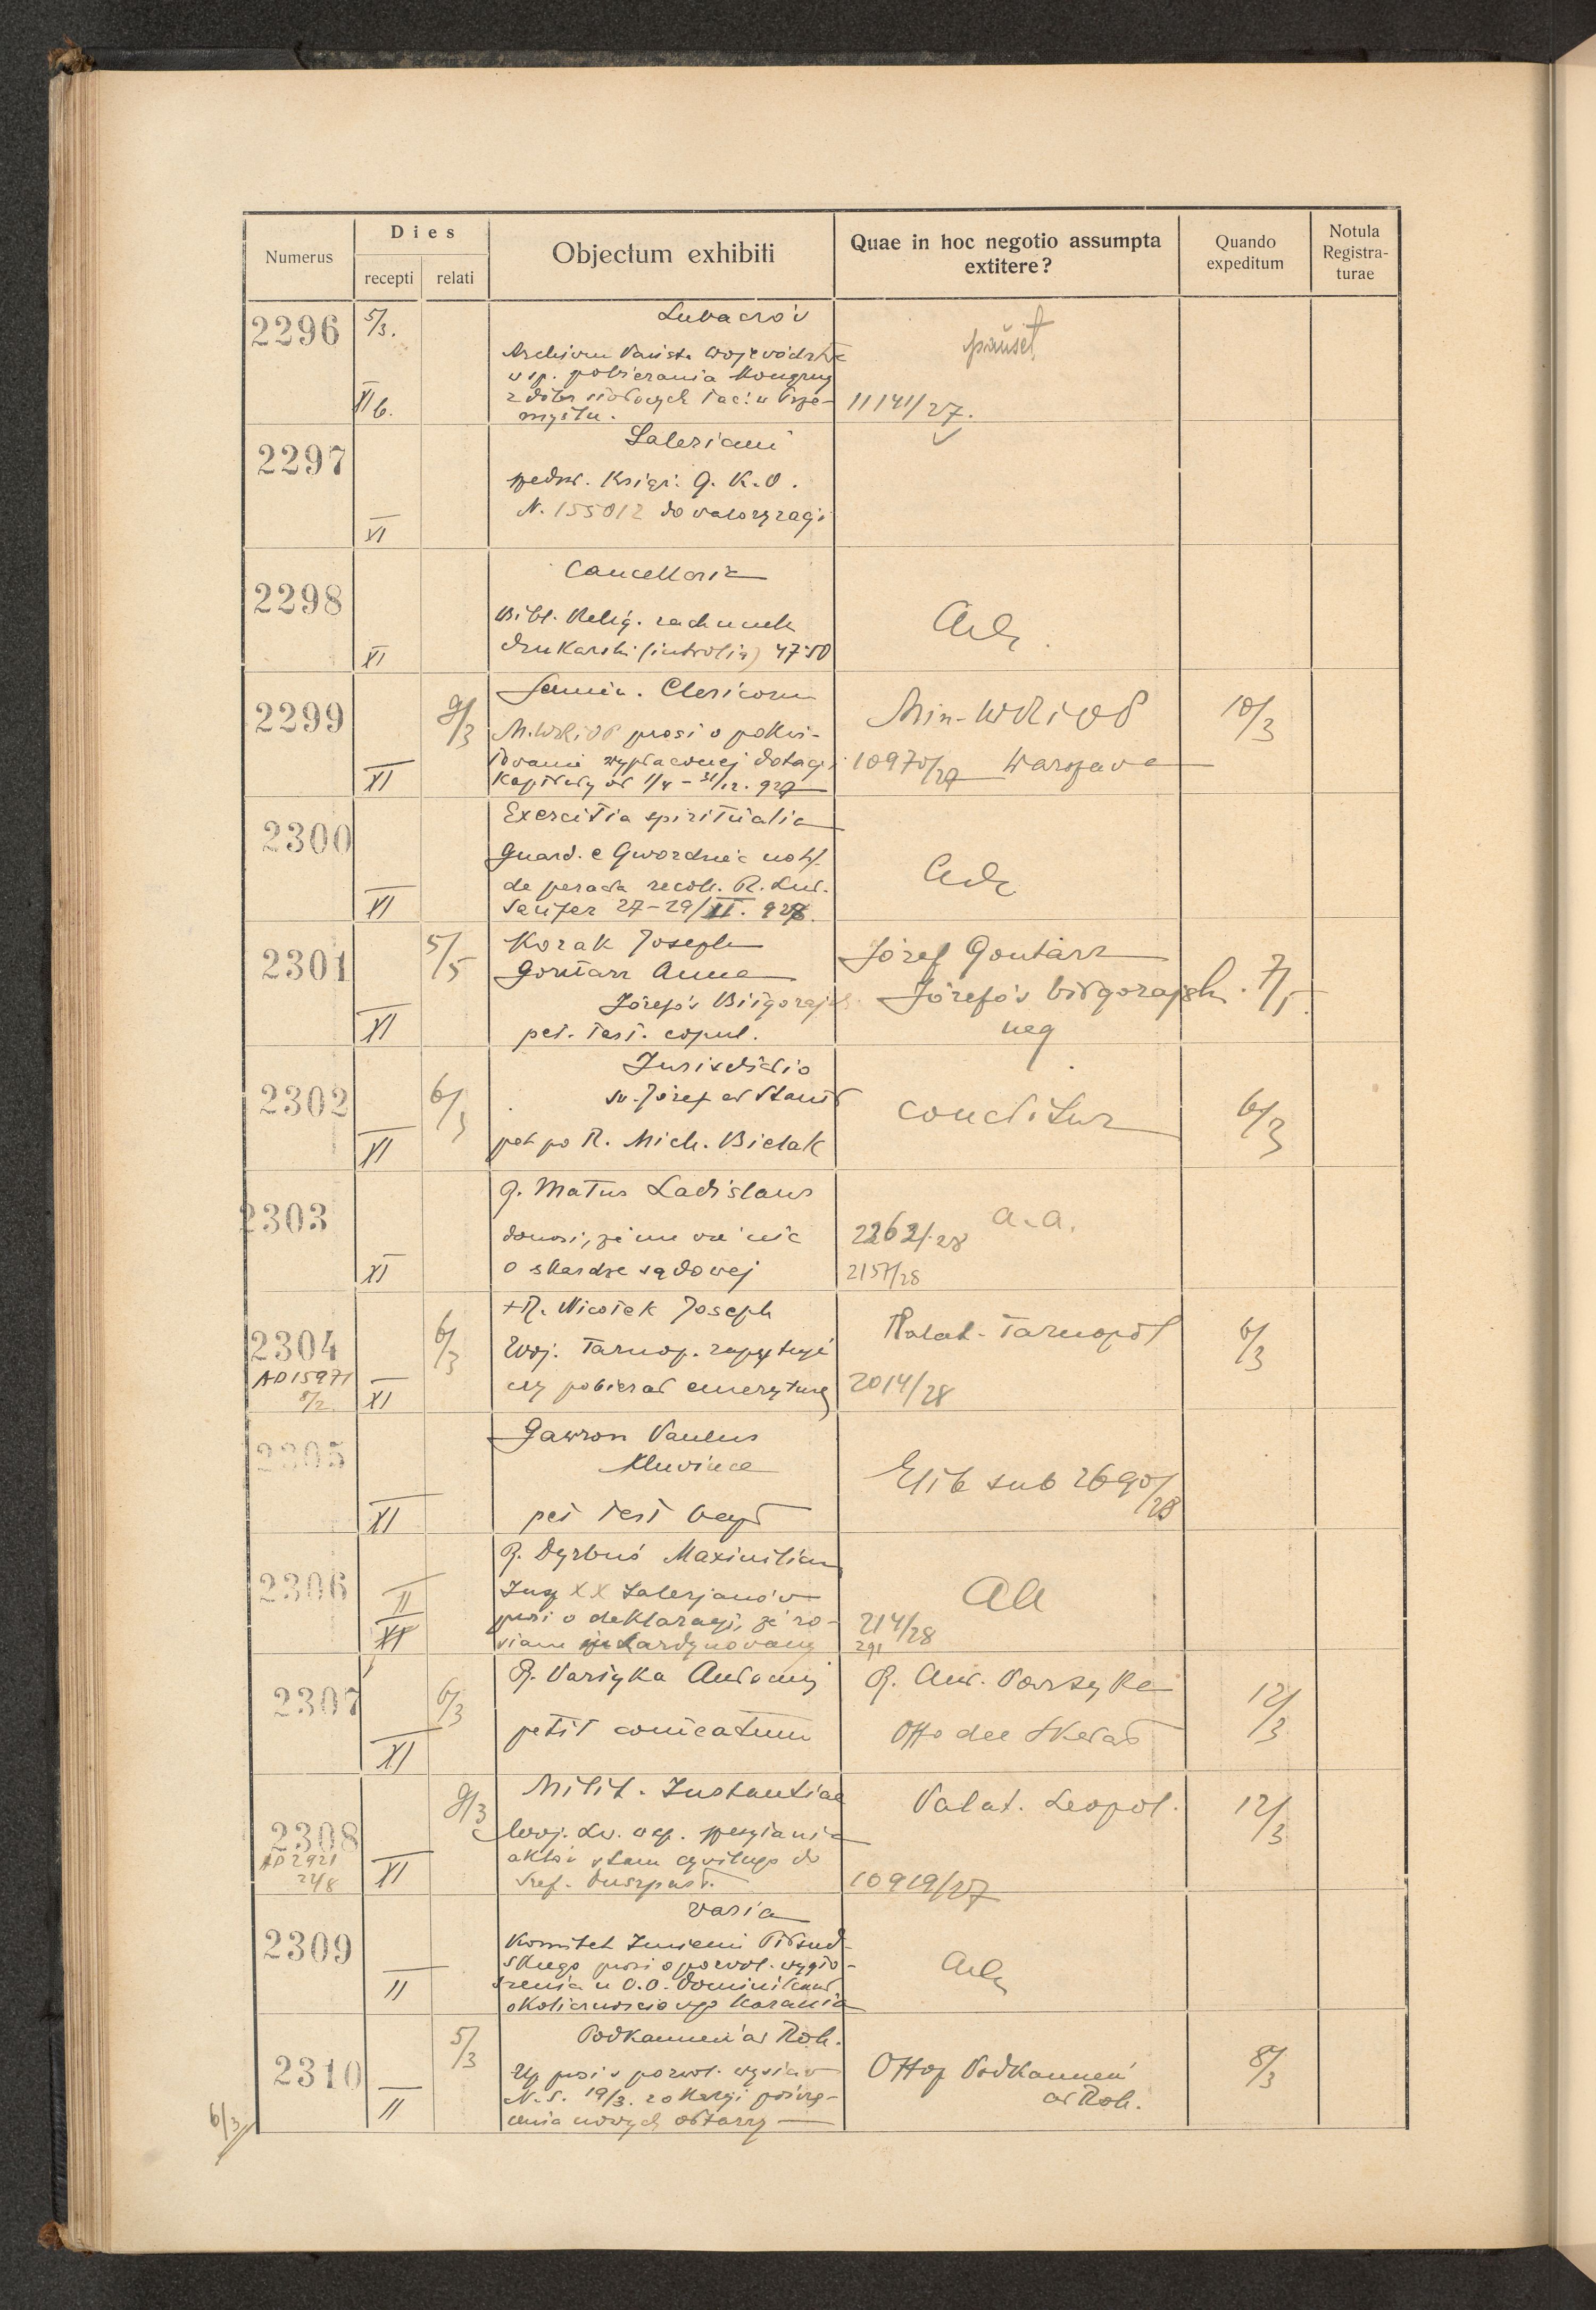 Numerus
Dies
recepti
relati
Objectum exhibiti
Quae in hoc negotio assumpta
extitere?
Quando
expeditum
Notula
Registra-
turae
2296
5/3.
XI b.
Lubaczów
Archivum Państ. Województwa
w sp. pobierania Kongruy
myślu.
11141/27.
2297
XI
Saleriani
N. 155012 do waloryzacji
2298
XI
Cancellaria
Bibl. Relig. rachunek
drukarski (introlig) 47.50
2299
9/3
XI
Semin. Clericorum
M.WRiOP prosi o pokwi-
towanie wypłaconej dotacji
1/4 - 31/12. 927
Min-WRiOP
10970/27 Warszawa
10/3
2300
XI
Exercitia spiritualia
Guard. e Gwoździec
de peracta recoll. R. Lud.
27-29/II. 928.
2301
5/5
XI
Kozak Joseph
Gontarz Anna
Józefów Biłgorajsk.
pet. test. copul.
Józef Gontarz
Józefów biłgorajski.
neg
7/5
2302
6/3
XI
Jurisdictio
św. Józef ad Stanis
pet po R. Mich. Bielak
conceditur
6/3
2303
XI
R. Matus Ladislaus
donosi, że nie wie nic
o skardze sądowej
a.a.
2262/28
2157/28
2304
AD 15971
8/2
6/3
XI
+R. Joseph
Woj. Tarnop. zapytuje
czy pobierał emeryturę
Palat. Tarnopol
2014/28
6/3
2305
XI
Gawron Paulus
Kluvince
pet test bapt
Elib sub 2690/28
2306
II
XI
R. Dyrbuś Maximilian
XX Salezjanów
prosi o deklarację, że zo-
stanie inkardynowany
214/28
291
2307
6/3
XI
R. Parzyka Antoni
petit
R. Ant. Parzyka
Otto dec Skałat
12/3
2308
AD 2921
22/8
9/3
XI
Milit. Instantiae
Woj. Lw. wsp. przesyłania
aktów stanu cywilnego do
Szef. Duszpast.
Palat. Leopol.
10919/27
12/3
2309
II
varia
Komitet Imieni Piłsud-
skiego prosi o pozwol. wygło-
szenia u O.O. Dominikanów
okolicznościowego kazania
2310
5/3
II
Podkamień ad Roh.
Up prosi o pozwol. wystaw
N.S. 19/3. z okazji poświę-
cenia nowych ołtarzy
Offop Podkamień
ad Roh.
8/3
6/3